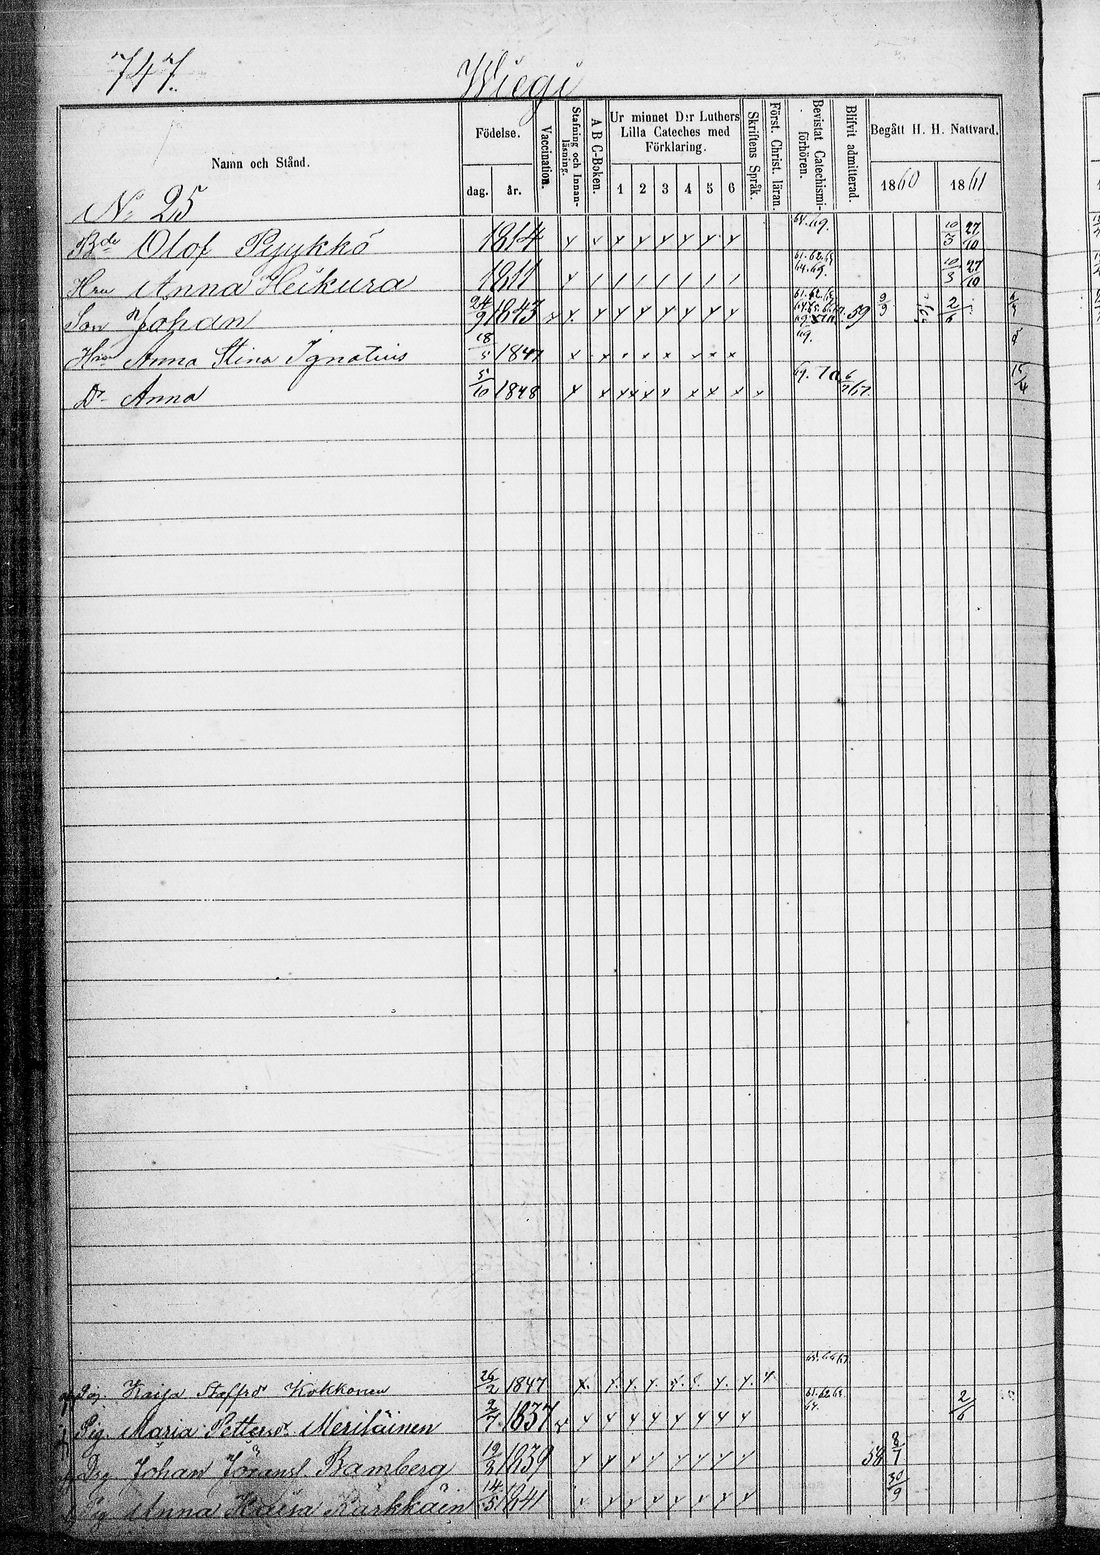 747.
Wiegi
Namn och Stånd.
Födelse.
dag. år.
Vaccination.
Stafning och Innanläsning.
A B C-Boken.
Ur minnet D:r Luthers Lilla Cateches med Förklaring.
1 2 3 4 5 6
Skriftens Språk.
Först. Christ. läran.
Bevistat Catechismiförhören.
Blifvit admitterad.
Begått H. H. Nattvard.
1860 1861
No 25
Bde Olof Pyykkö 1814 x x x x x x x x 64. 69. 10/3 27/10
Hru Anna Heikura 1811 x / / / / / / / 61. 62. 63. 64. 69. 10/3 27/10
Son Johan 24/9 1843 x x x x x x x x x 59 9/9 2/6
Hru Anna Stina Ignatius 18/5 1847 x x x x x x x x x 69.
Dr Anna 5/10 1848 x x x x x x x x x x 69. 70 67. 15/4
Kaisa Staffrsdr Kokkonen 26/2 1847 x x x x x x x x x
Pig. Maria Pettersdr Meriläinen 2/7 1837 x x x x x x x x x 61. 62. 63. 64. 2/6
Drg Johan Göransl Bamberg 19/2 1839 x x x x x x x x 58 8/7
Pig Anna Kaisa Kärkkäin 14/5 1841 x x x x x x x x 30/9